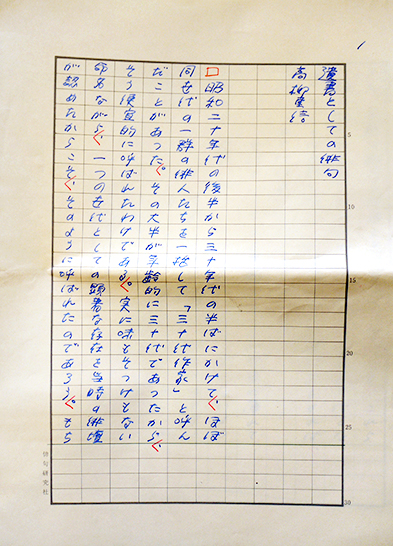 1
遺書としての俳句
高柳重信
昭和二十年代の後半から三十年代の半ばにかけて、ほぼ
の一群の俳人たちを一括して「三十代作家」と呼ん
だことがあった。その大半が年齢的に三十代であったから、
そう便宜的に呼ばれたわけであるが、実に味もそっけもない
顕著な存在 当時の俳壇
が認めたからこそ、そのように呼ばれたのであろう。もちろ
5
10
15
20
25
30
俳句研究社